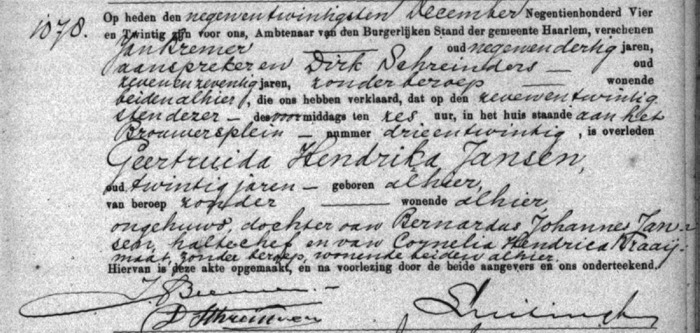 1078.
Op heden den negenentwintigsten December Negentienhonderd Vier
en Twintig zijn voor ons, Ambtenaar van den Burgerlijken Stand der gemeente Haarlem, verschenen
Jan Kremer oud negenendertig jaren,
aanspreker en Dirk Schreinders oud
zevenenzeventig jaren, zonder beroep wonende
beiden alhier, die ons hebben verklaard, dat op den zevenentwintig
sten dezer – des voormiddags ten zes uur, in het huis staande aan het
Brouwersplein – nummer drieentwintig, is overleden
Geertruida Hendrika Jansen,
oud twintig jaren – geboren alhier,
van beroep zonder wonende alhier,
ongehuwd, dochter van Bernardus Johannes Jan-
sen, haltechef en van Cornelia Hendrica Kraaij-
maat, zonder beroep, wonende beiden alhier.
Hiervan is deze akte opgemaakt, en na voorlezing door de beide aangevers en ons onderteekend.